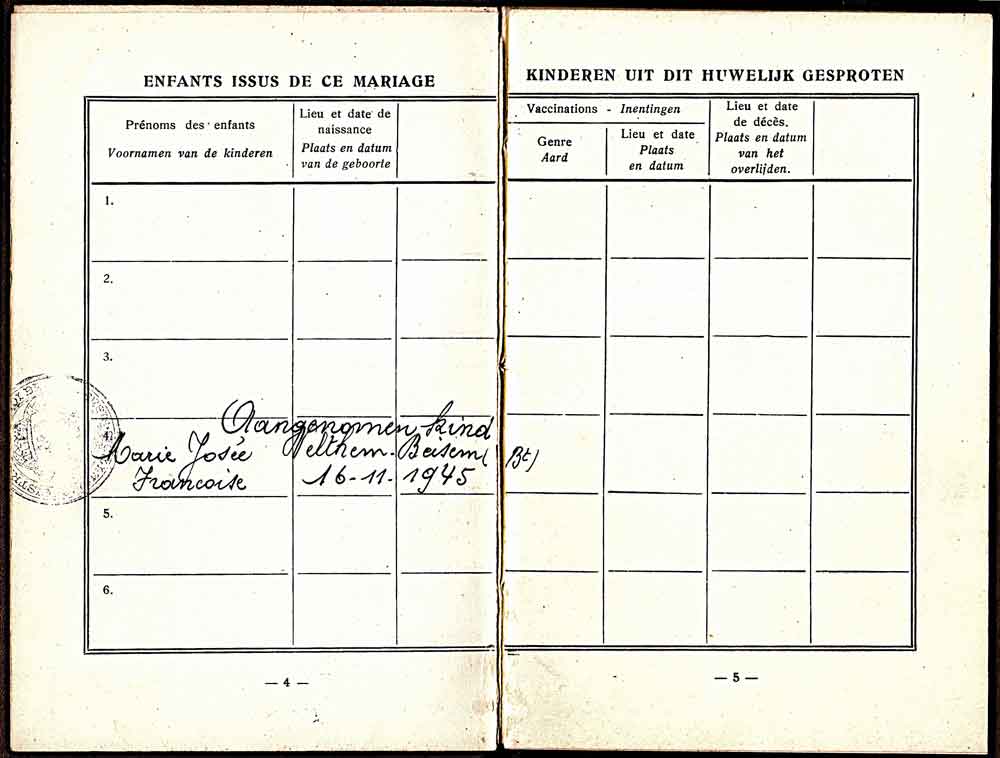 ENFANTS ISSUS DE CE MARIAGE
Prénoms des enfants
Voornamen van de kinderen
Lieu et date de
naissance
Plaats en datum
van de geboorte
1.
2.
3.
4.
Aangenomen kind
Marie Josée Velthem-Beisem (Bt)
Francoise 16-11-1945
5.
6.
— 4 —
KINDEREN UIT DIT HUWELIJK GESPROTEN
Vaccinations - Inentingen
Genre
Aard
Lieu et date
Plaats
en datum
Lieu et date
de décès.
Plaats en datum
van het
overlijden.
— 5 —